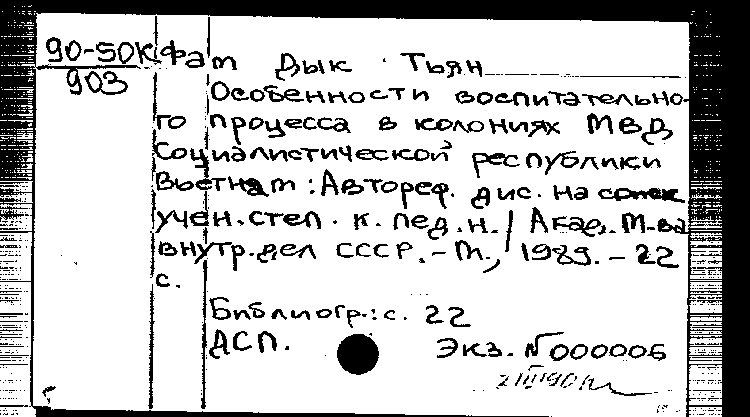 90-50К Фам Дык Тьян
903
Особенности воспитательно-
го процесса в колониях МВД
Социалистической республики
Вьетнам : Автореф. дис. на соиск
учен. степ. к. пед. н. / Акад. М-ва
внутр. дел СССР. - М., 1989. - 22
с.
Библиогр.: с. 22
ДСП. Экз. №000006